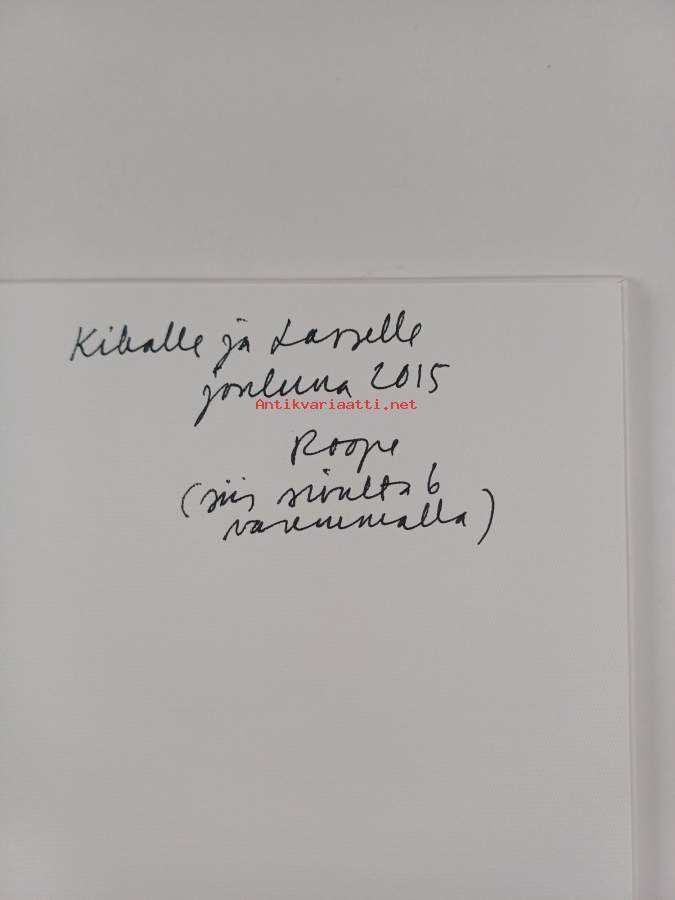 Kikalle ja Lasselle
jouluna 2015
Antikvariaatti.net
Roope
(siis sivulta 6
vasemmalla)